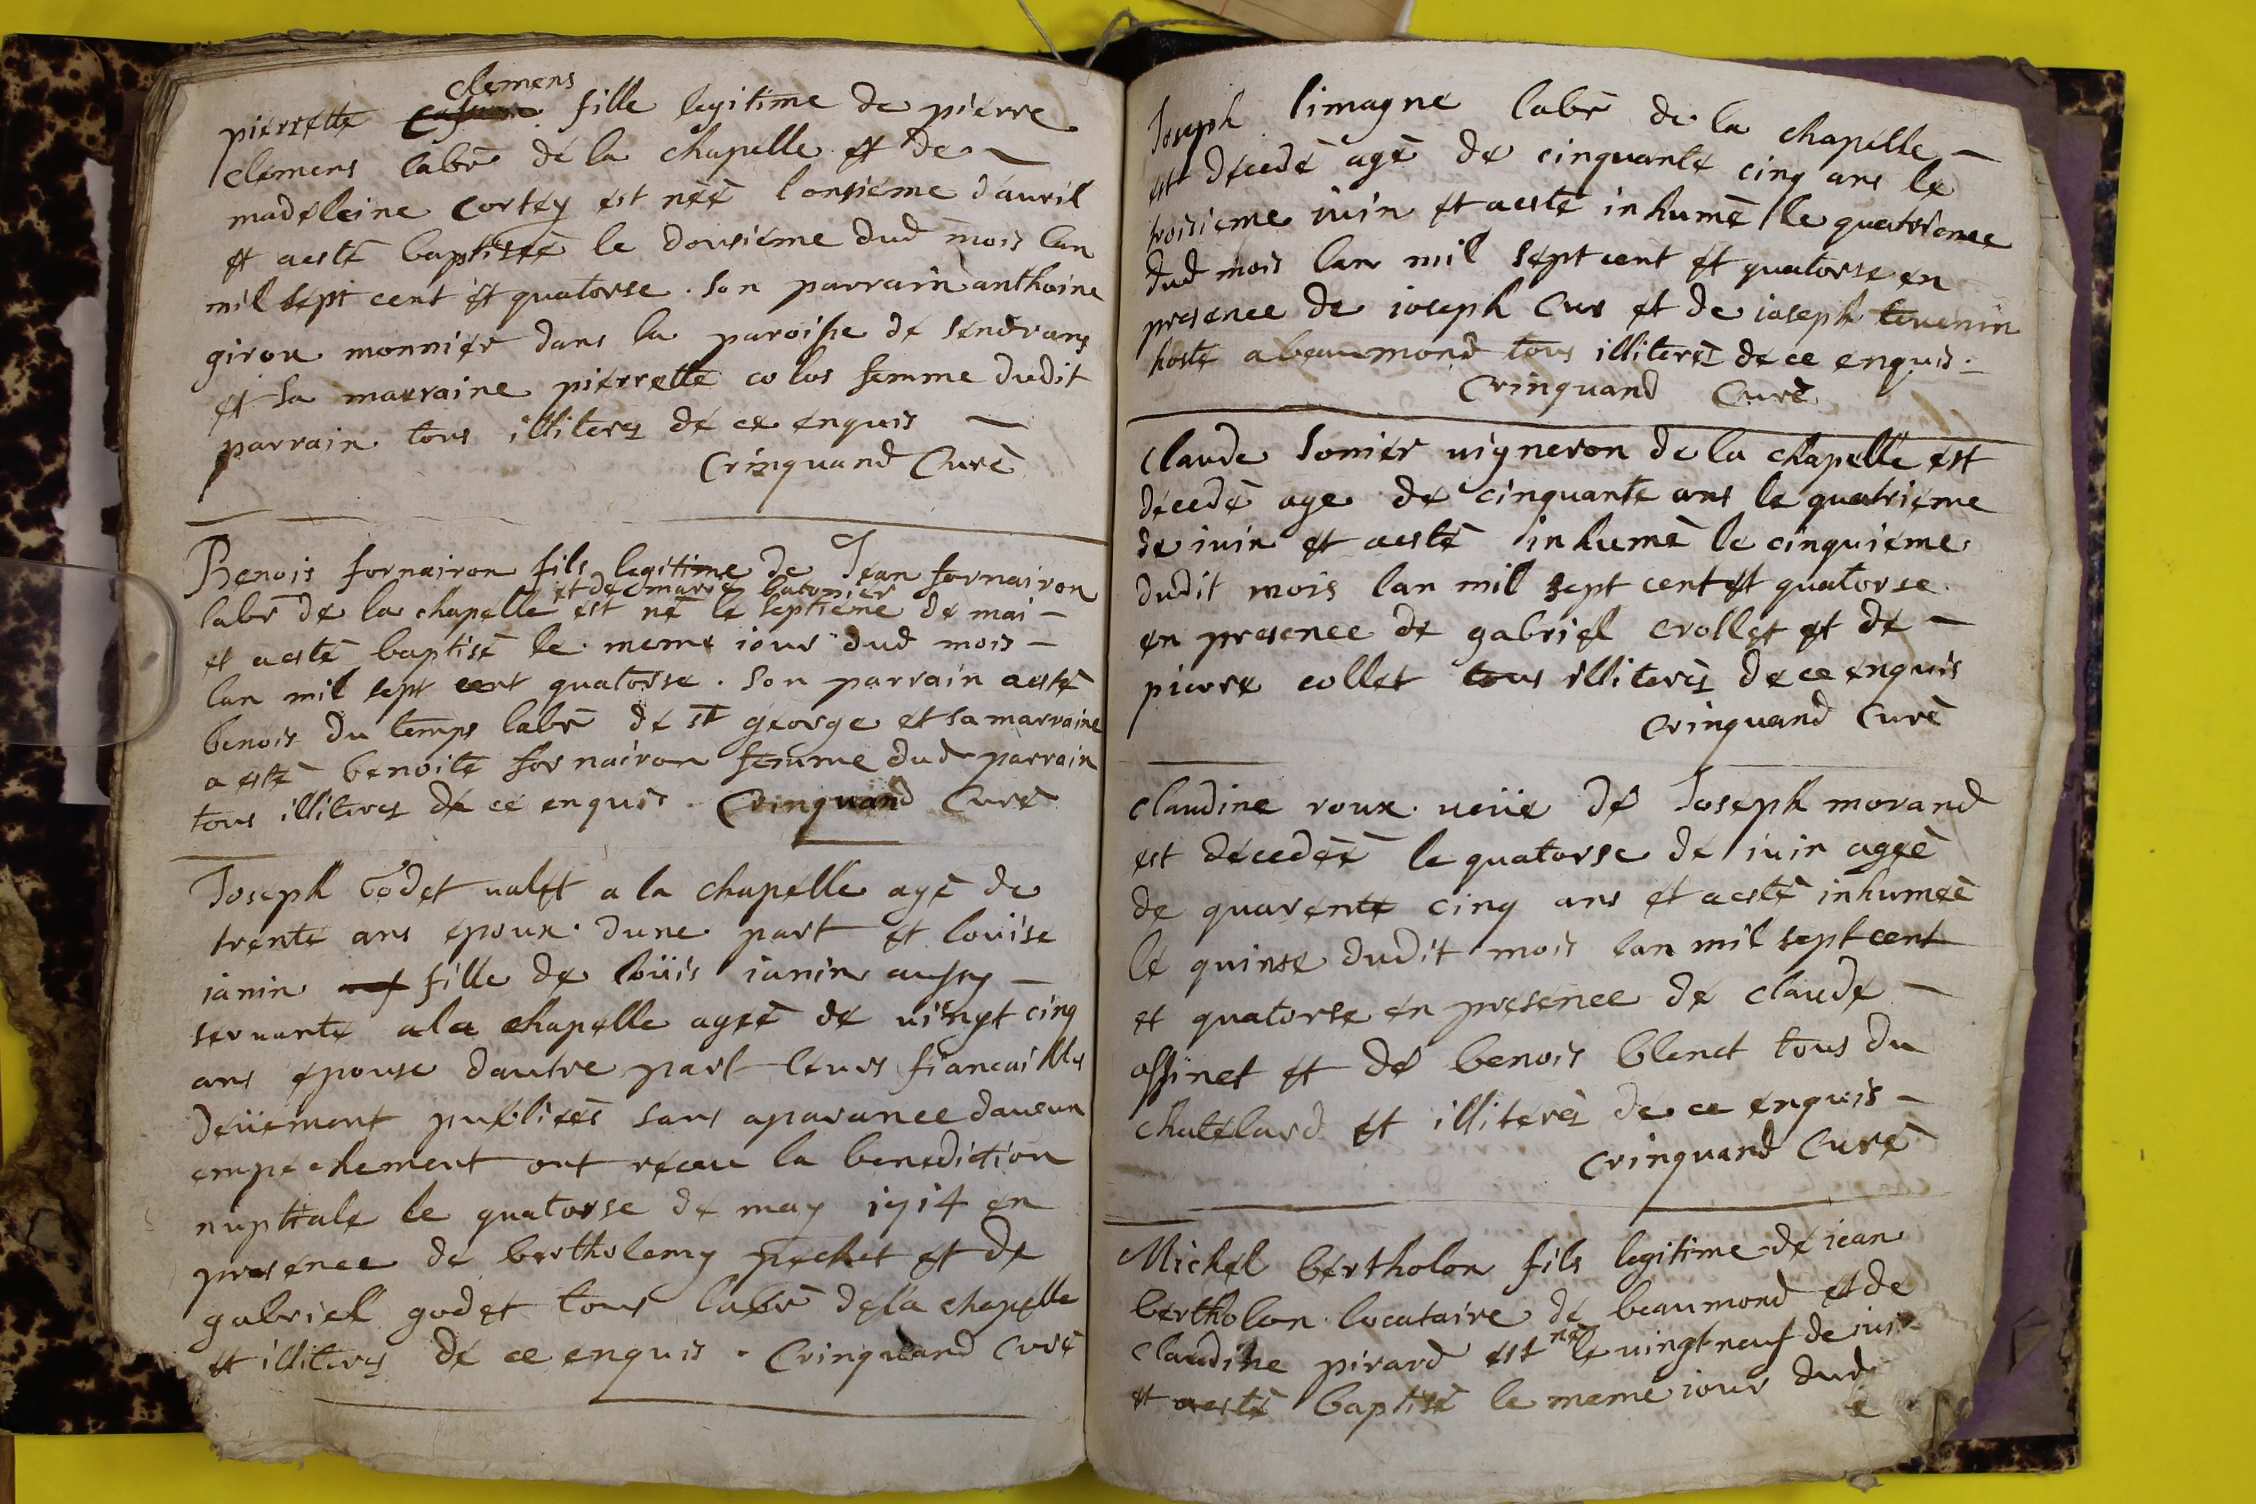 clemens
pierrette fille legitime de pierre
clemens labr de la chapelle et de
madeleine cortey est néé lonsieme dauril
et aesté baptiséé le dousieme dud mois lan
mil sept cent et quatorse. Son parrain anthoine
girou monnier dans la paroisse de sendrans
et sa marraine pierrette colos femme dudit
parrain tous illiteres de ce enquis
Crinquand Curé
Benois fornairon fils legitime de Jean fornairon
et de marie batonier
labr de la chapelle est né le septieme de mai
et aesté baptisé le meme iour dud mois
lan mil sept cent quatorse. Son parrain aesté
benois du temps labr de st george et sa marraine
a esté benoite fornairon femme dud parrain
tous illiteres de ce enquis. Crinquand Curé
Joseph Godet ualet a la chapelle agé de
trente ans epoux dune part et louise
ianin fille de loüis ianin aussy
seruante a la chapelle agéé de uingt cinq
ans epouse dautre part leurs fiancailles
deüement publiéés sans aparance daucun
empechement ont receu la benediction
nuptiale le quatorse de may 1714 en
presence de bartholemy pochet et de
gabriel godet tous labr de la chapelle
et illiteres de ce enquis. Crinquand Curé
Joseph limagne labr de la chapelle
est décedé agé de cinquante cinq ans le
troisieme iuin et aesté inhumé le quatrieme
dud mois lan mil sept cent et quatorse en
presence de ioseph Cur et de ioseph teuenin
hoste a beaumond tous illiterés de ce enquis.
Crinquand Curé
Claude Somier uigneron de la chapelle est
décedé age de cinquante ans le quatrieme
de iuin et aesté inhumé le cinquieme
dudit mois lan mil sept cent et quatorse
en presence de gabriel crollet et de
pierre collet tous illiterés de ce enquis
Crinquand Curé
claudine roux ueüe de Joseph morand
est décedéé le quatorse de iuin agéé
de quarente cinq ans et aesté inhuméé
le quinse dudit mois lan mil sept cent
et quatorse en presence de claude
assinet et de benois blenet tous du
chatelard et illiterés de ce enquis
Crinquand Curé
Michel bertholon fils legitime de iean
bertholon locataire de beaumond et de
claudine pirard est né le uingt neuf de iuin
et aesté baptisé le meme iour dud